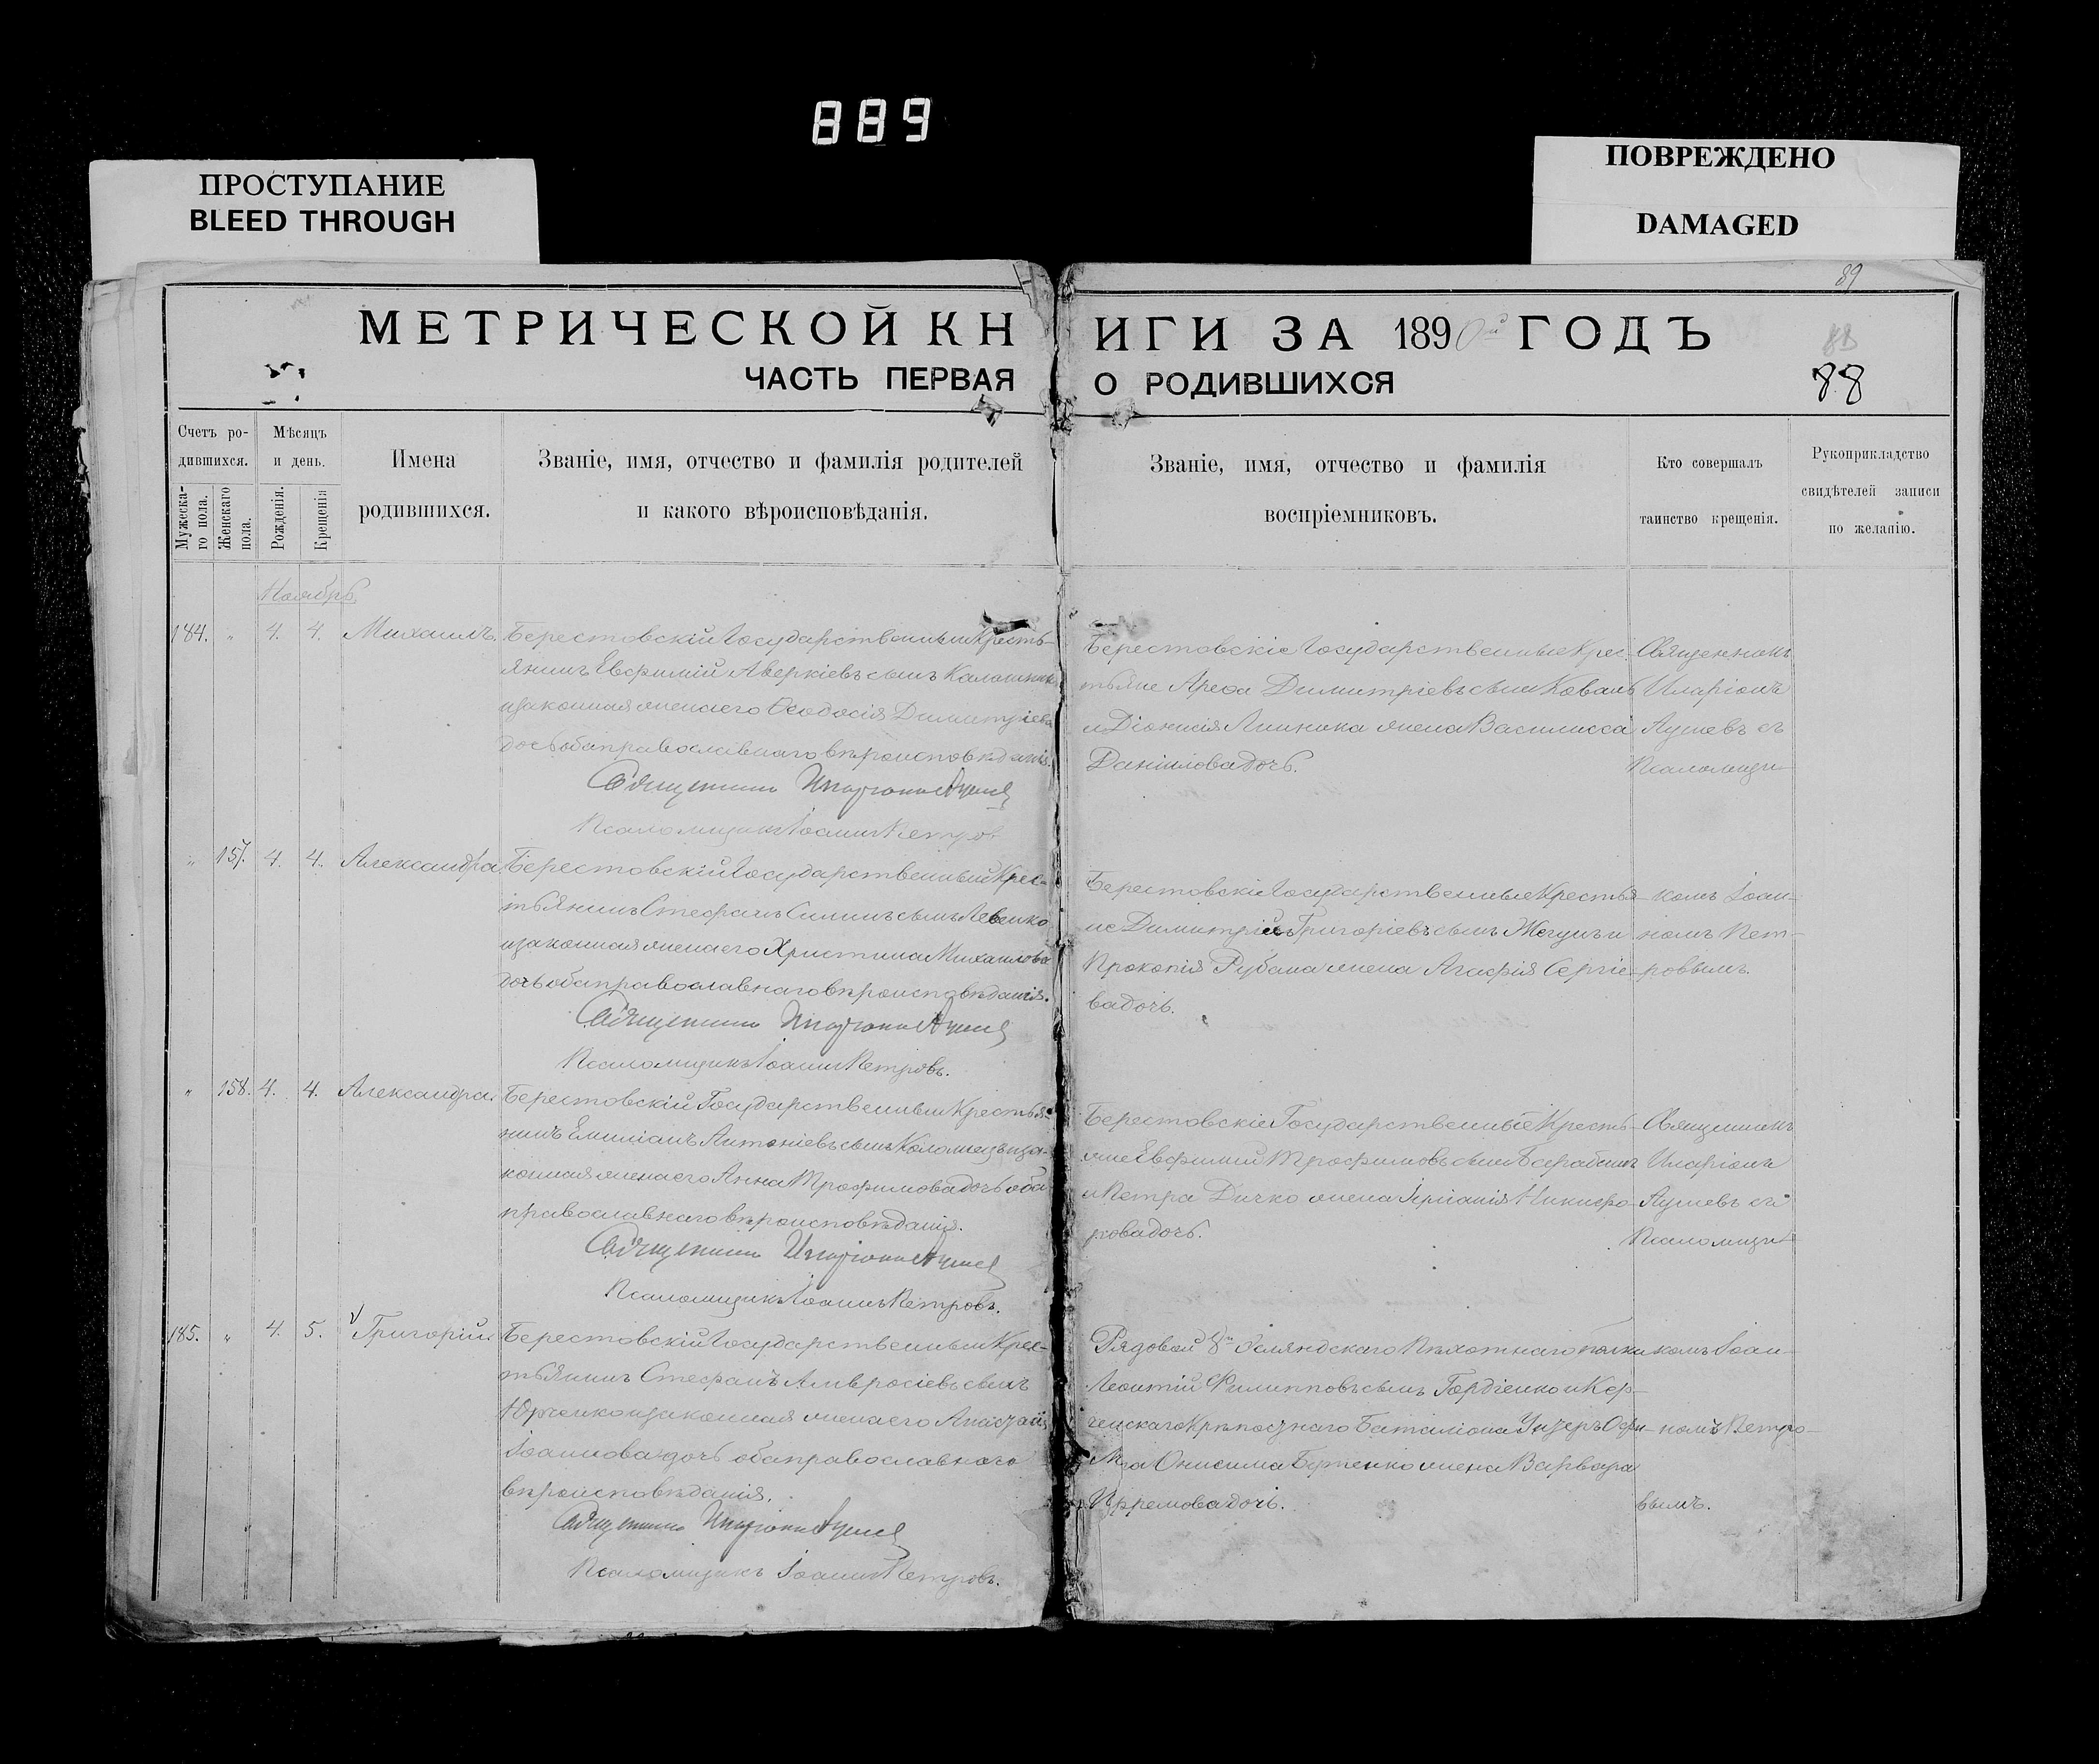 889
ПРОСТУПАНИЕ
BLEED THROUGH
ПОВРЕЖДЕНО
DAMAGED
89
МЕТРИЧЕСКОЙ КН
ИГИ ЗА 1890й ГОДЪ
88
ЧАСТЬ ПЕРВАЯ
О РОДИВШИХСЯ
88
Счетъ ро-
дившихся.
Мужеска-
го пола.
Женскаго
пола.
Мѣсяцъ
и день.
Рожденія.
Крещенія
Имена
родившихся.
Званіе, имя, отчество и фамилія родителей
и какого вѣроисповѣданія.
Званіе, имя, отчество и фамилія
воспріемниковъ.
Кто совершалъ
таинство крещенія.
Рукоприкладство
свидѣтелей записи
по желанію.
Ноябрь
184. " 4. 4. Михаилъ. Берестовскій Государственный Кресть-
янинъ Евфимій Аверкіевъ сынъ
и законная жена его Ѳеодосія Димитріева
дочь оба православнаго вѣроисповѣданія.
Священникъ Иларіонъ
Псаломщикъ Іоаннъ Петров
Берестовскіе Государственные Крес-
тьяне Арефа Димитріевъ сынъ Коваль
и Діонисія жена Василисса
Даніилова дочь.
Священникъ
Иларіонъ
съ
Псаломщи-
" 157. 4. 4. Александра. Берестовскій Государственный Крес-
тьянинъ Стефанъ сынъ Левенко
и законная жена его Христина Михаилова
дочь оба православнаго вѣроисповѣданія.
Священникъ Иларіонъ
Псаломщикъ Іоаннъ Петровъ.
Берестовскіе Государственные Крестья-
не Димитрій Григоріевъ сынъ Жегунъ и
Прокопія Рубана жена Агафія Сергіе-
ва дочь.
комъ Іоан-
номъ Пет-
ровымъ.
" 158. 4. 4. Александра. Берестовскій Государственный Крестья-
нинъ Емиліанъ Антоніевъ сынъ Коломіецъ и за-
конная жена его Анна Трофимова дочь оба
православнаго вѣроисповѣданія.
Священникъ Иларіонъ
Псаломщикъ Іоаннъ Петровъ.
Берестовскіе Государственные Кресть-
яне Евфимій Трофимовъ сынъ
и Петра Дичко жена Никифо-
рова дочь.
Священникъ
Иларіонъ
съ
Псаломщи-
185. " 4. 5. Григорій. Берестовскій Государственный Крес-
тьянинъ Стефанъ Амвросіевъ сынъ
Юрченко и законная жена его
Іоаннова дочь оба православнаго
вѣроисповѣданія.
Священникъ Иларіонъ
Псаломщикъ Іоаннъ Петровъ.
Рядовой Пѣхотнаго полка
Леонтій Филипповъ сынъ Гордіенко и Кер-
ченскаго Крѣпостнаго Баталіона Унтеръ Офи-
Онисима жена Варвара
дочь.
комъ Іоан-
номъ Петро-
вымъ.